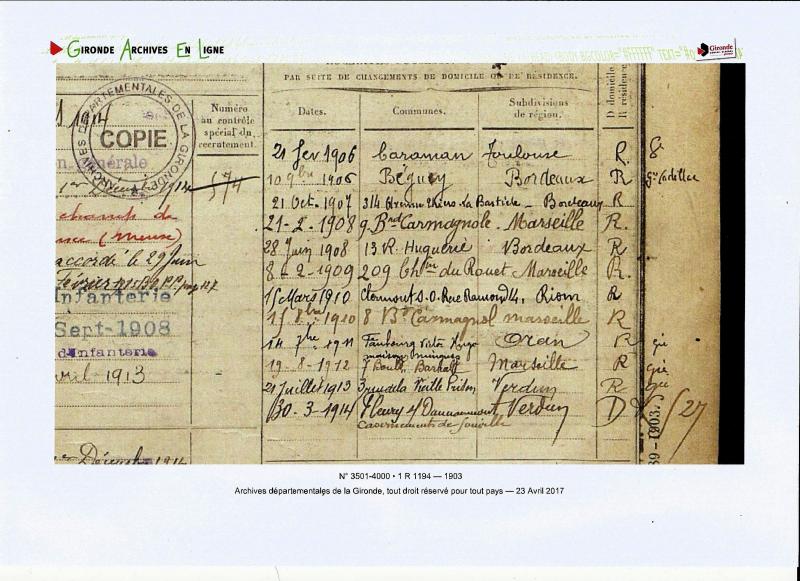 GIRONDE ARCHIVES EN LIGNE
Gironde
PAR SUITE DE CHANGEMENTS DE DOMICILE OU DE RÉSIDENCE.
ARCHIVES DÉPARTEMENTALES DE LA GIRONDE
COPIE
1914
générale
1er Décembre 1914
champs de
(Meuse)
accordé le 29 Juin
Février
Infanterie
Sept-1908
d'Infanterie
1913
Décembre 1914
Numéro
au contrôle
spécial du
recrutement.
574
Dates. Communes. Subdivisions
de région.
D domicile
R résidence
21 fev 1906 Caraman Toulouse R.
10 9bre 1906 Béguey Bordeaux R
21 Oct. 1907 314 Avenue Thiers La Bastide - Bordeaux R
21-2-1908 9. Bd Carmagnole. Marseille R.
28 Juin 1908 13 R. Huguerie Bordeaux R
8-2-1909 209 Ch. du Rouet Marseille R.
15 Mars 1910 Clermont Riom R
1910 8 Bd Carmagnol marseille R
14 1911 Faubourg Victor Hugo Oran R
maison
19-8-1912 7 Boul. Marseille R
21 Juillet 1913 3 rue de la Vieille Prison Verdun R
30-3-1914 Fleury s/ Douaumont Verdun D
Casernements de
27
1903.
N° 3501-4000 • 1 R 1194 — 1903
Archives départementales de la Gironde, tout droit réservé pour tout pays — 23 Avril 2017